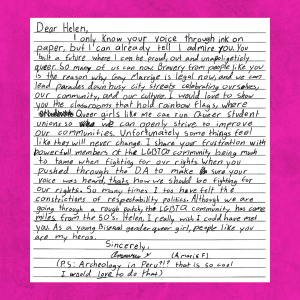 Dear Helen,
I only know your voice through ink on
paper, but I can already tell I admire you. You
built a future where I can be proud, out and unapologeticly
queer. So many of us can now. Bravery from people like you
is the reason why Gay Marrige is legal now, and we can
lead parades down busy city streets celebrating ourselves,
our community, and our culture. I would love to show
you the classrooms that hold rainbow flags, where
Queer girls like me can run Queer Student
unions so we can openly strive to improve
our communities. Unfortunately some things feel
like they will never change. I share your frustration with
powerfull members of the LGBTQ community being much
to tame when fighting for our rights when you
pushed through the D.A to make sure your
voice was heard, thats how we should be fighting for
our rights. So many times I too have felt the
constrictions of respectability politics. Although we are
going through a rough patch, the LGBTQ community has come
miles from the 50's. Helen, I really wish I could have met
you. As a young Bisexual genderqueer girl, people like you
are my heros.
Sincerely,
(P.S: Archeology in Peru?!? that is so cool
I would love to do that)